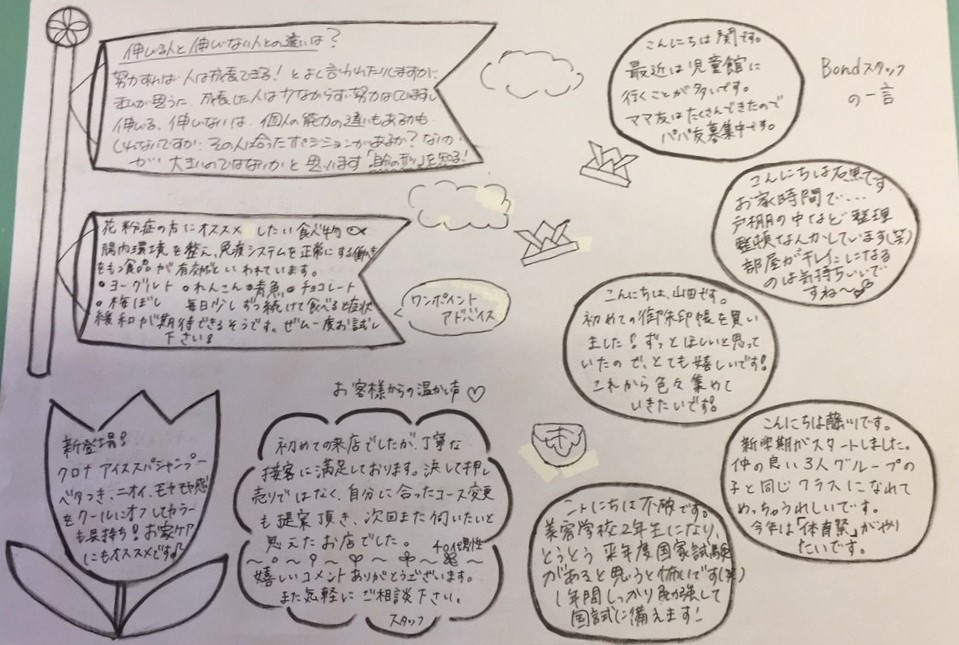 伸びる人と伸びない人との違いは？
努力すれば人は成長できる！とよく言われたりしますが、
私が思うに、成長した人は少なからず努力はしていますし
伸びる、伸びないは、個人の能力の違いもあるかも
しれないですが、その人に合ったポジションがあるか？ないか
が大きいのではないかと思います「自分の形」を知る！
花粉症の方にオススメしたい食べ物
腸内環境を整え、免疫システムを正常にする働き
をもつ食品が有効だといわれています。
・ヨーグルト ・れんこん ・青魚 ・チョコレート
・梅ぼし 毎日少しずつ続けて食べると症状
緩和が期待できるそうです。ぜひ一度お試し
下さい！
ワンポイント
アドバイス
新登場！
クロナ アイススパシャンプー
ベタつき、ニオイ、モヤモヤ感
をクールにオフしてカラー
も長持ち！お家ケア
にもオススメです♪
お客様からの温かい声♡
初めての来店でしたが、丁寧な
接客に満足しております。決して押し
売りではなく、自分に合ったコース変更
も提案頂き、次回また伺いたいと
思えたお店でした。
40代男性
嬉しいコメントありがとうございます。
また気軽にご相談下さい。
スタッフ
Bondスタッフ
の一言
こんにちは関です。
最近は児童館に
行くことが多いです。
ママ友はたくさんできたので
パパ友募集中です。
こんにちは石黒です
お家時間で・・・
戸棚の中など整理
整頓なんかしています(笑)
部屋がキレイになる
のは気持ちいいで
すね〜
こんにちは、山田です。
初めての御朱印帳を買い
ました！ずっとほしいと思って
いたので、とても嬉しいです！
これから色々集めて
いきたいです。
こんにちは藤川です。
新学期がスタートしました。
仲の良い3人グループの
子と同じクラスになれて
めっちゃうれしいです。
今年は「体育祭」がやり
たいです。
こんにちは不破です。
美容学校2年生になり、
とうとう来年度国家試験
があると思うと怖いです(笑)
1年間しっかり勉強して
国試に備えます！